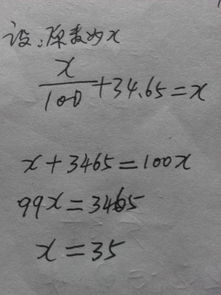 设:原数为x
x/100+34.65=x
x+3465=100x
99x=3465
x=35